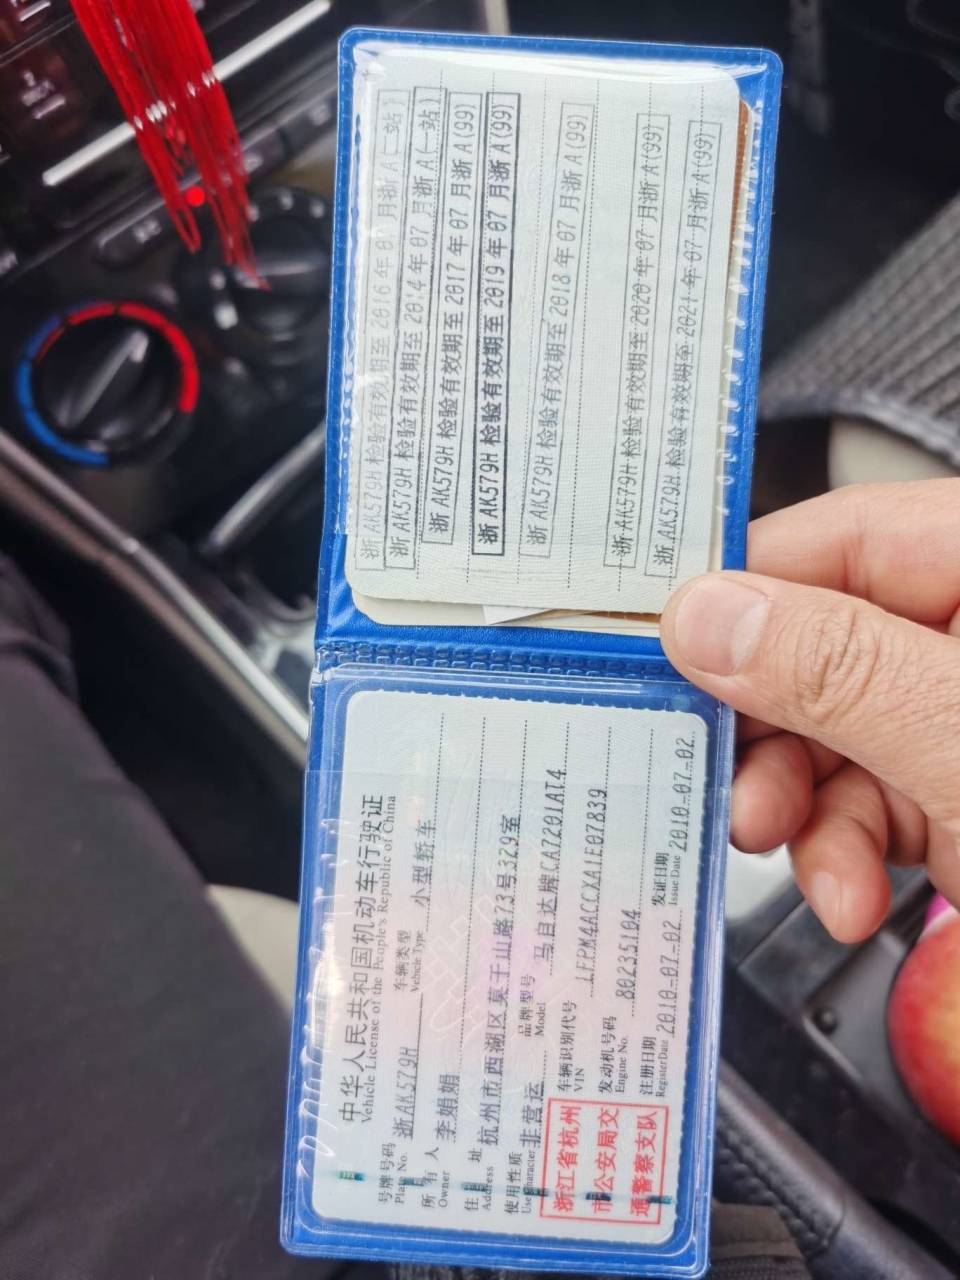 浙AK579H 检验有效期至 2016 年 07 月浙 A(一站)
浙AK579H 检验有效期至 2014 年 07 月浙 A(一站)
浙 AK579H 检验有效期至 2017 年 07 月浙 A(99)
浙 AK579H 检验有效期至 2019 年 07 月浙 A(99)
浙 AK579H 检验有效期至 2018 年 07 月浙 A(99)
浙 AK579H 检验有效期至 2020 年 07 月浙 A(99)
浙 AK579H 检验有效期至 2021 年 07 月浙 A(99)
中华人民共和国机动车行驶证
Vehicle License of the People's Republic of China
号牌号码 浙AK579H 车辆类型 小型轿车
Plate No. Vehicle Type
所有人 李娟娟
Owner
住址 杭州市西湖区莫干山路73号329室
Address
使用性质 非营运 品牌型号 马自达牌CA7201AT4
Use Character Model
浙江省杭州
市公安局交
通警察支队
车辆识别代号 LFPM4ACCXA1E07839
VIN
发动机号码 80235104
Engine No.
注册日期 2010-07-02 发证日期 2010-07-02
Register Date Issue Date